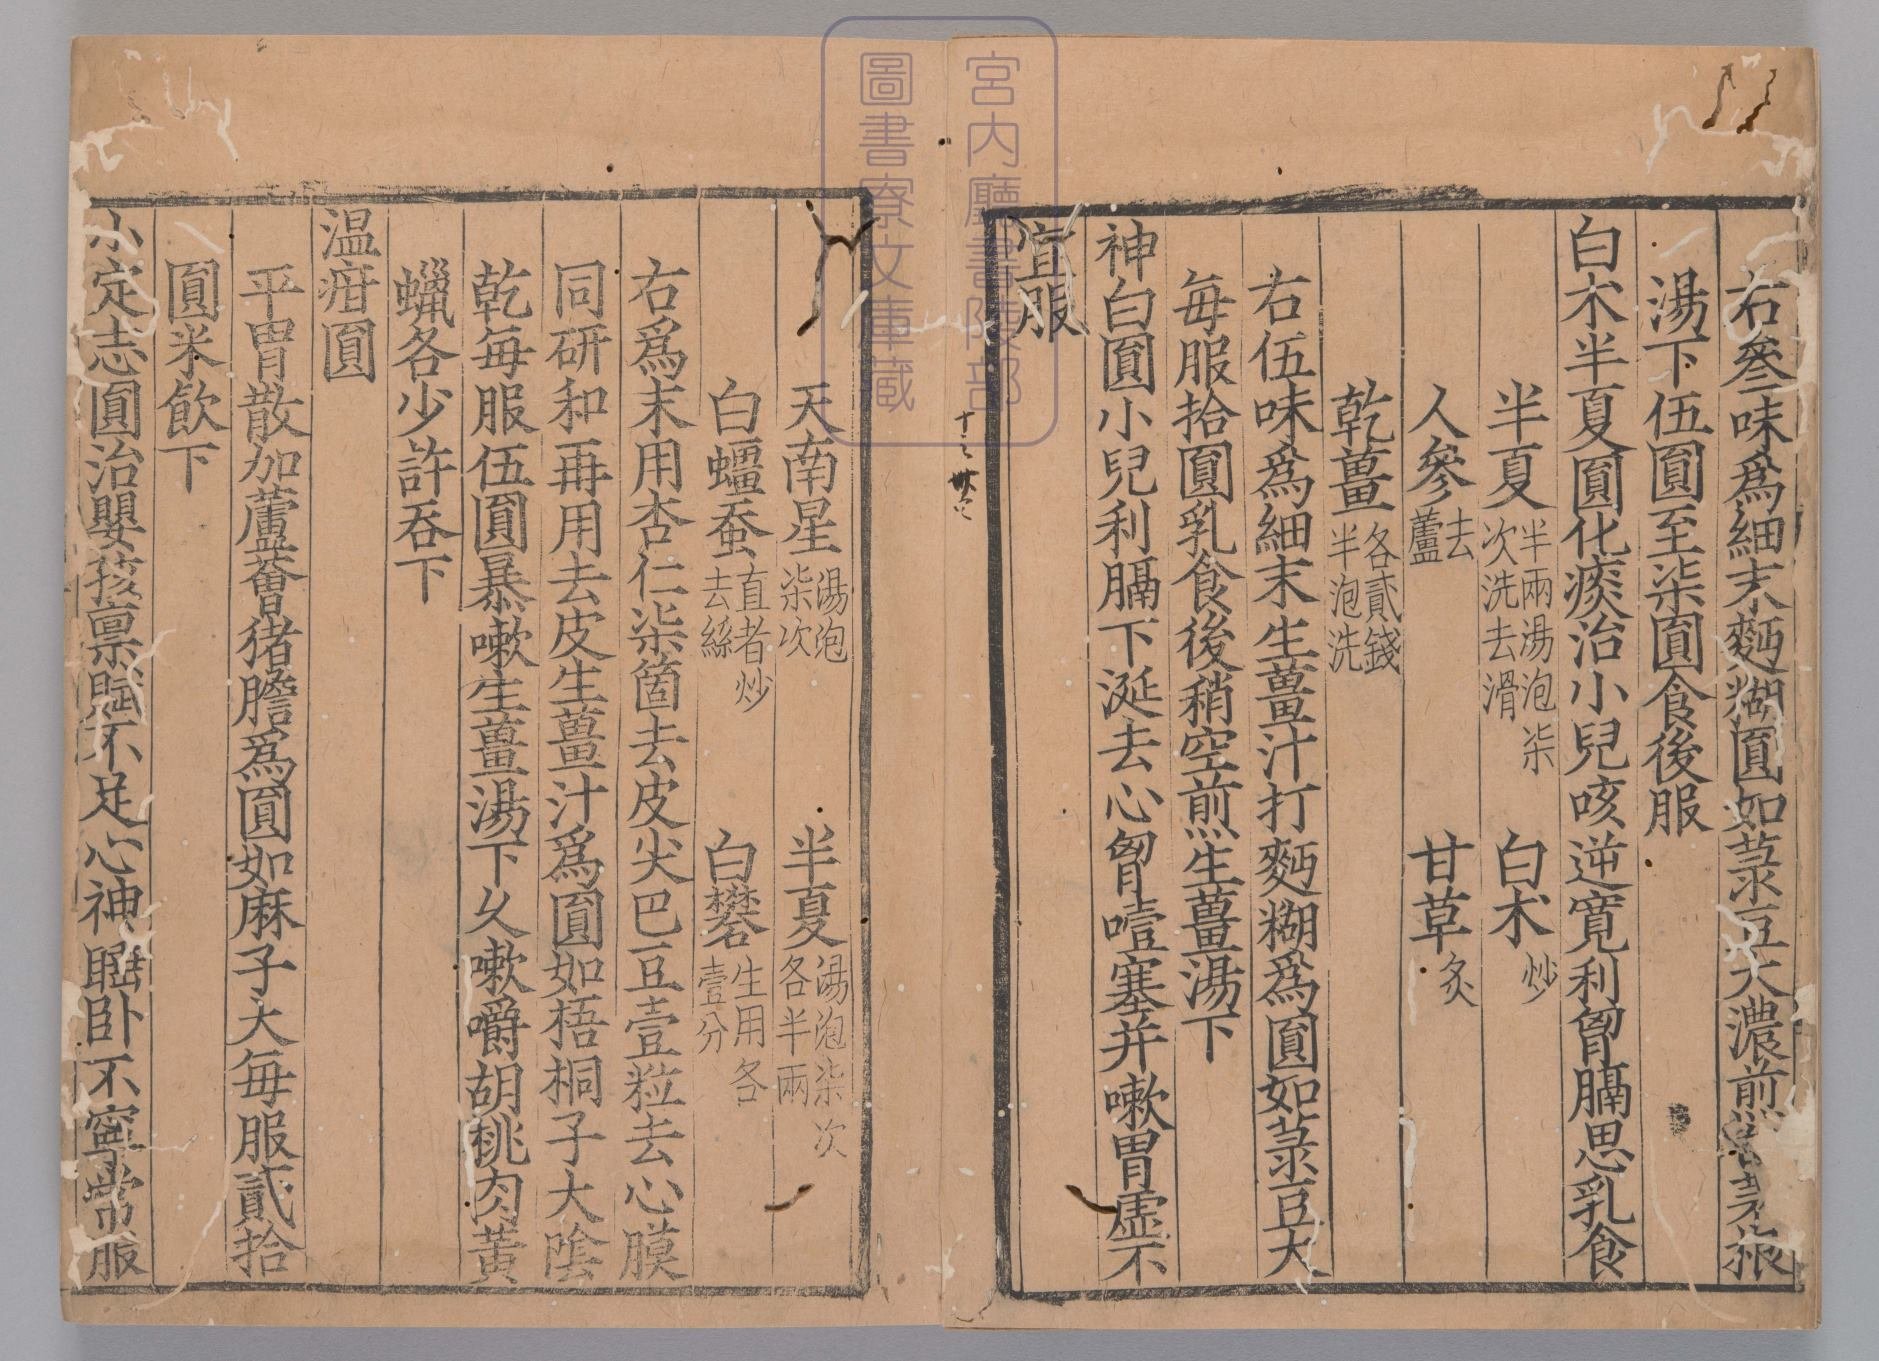 右叄味爲細末麪糊圓如菉豆大濃煎
湯下伍圓至柒圓食後服
白术半夏圓化痰治小兒咳逆寛利胷膈思乳食
半夏半兩湯泡柒次洗去滑 白术炒
人參去蘆 甘草炙
乾薑各貳錢半泡洗
右伍味爲細末生薑汁打麪糊爲圓如菉豆大
每服拾圓乳食後稍空煎生薑湯下
神白圓小兒利膈下涎去心胷噎塞并嗽胃虛不
宜服
天南星湯泡柒次 半夏湯泡柒次各半兩
白殭蚕直者炒去絲 白礬生用各壹分
右爲末用杏仁柒箇去皮尖巴豆壹粒去心膜
同研和再用去皮生薑汁爲圓如梧桐子大隂
乾每服伍圓暴嗽生薑湯下乆嗽嚼胡桃肉黃
蠟各少許吞下
温疳圓
平胃散加蘆薈猪膽爲圓如麻子大每服貳拾
圓米飮下
小定志圓治嬰孩禀賦不足心神 卧不寧常服
宮内廳書陵部
圖書寮文庫藏